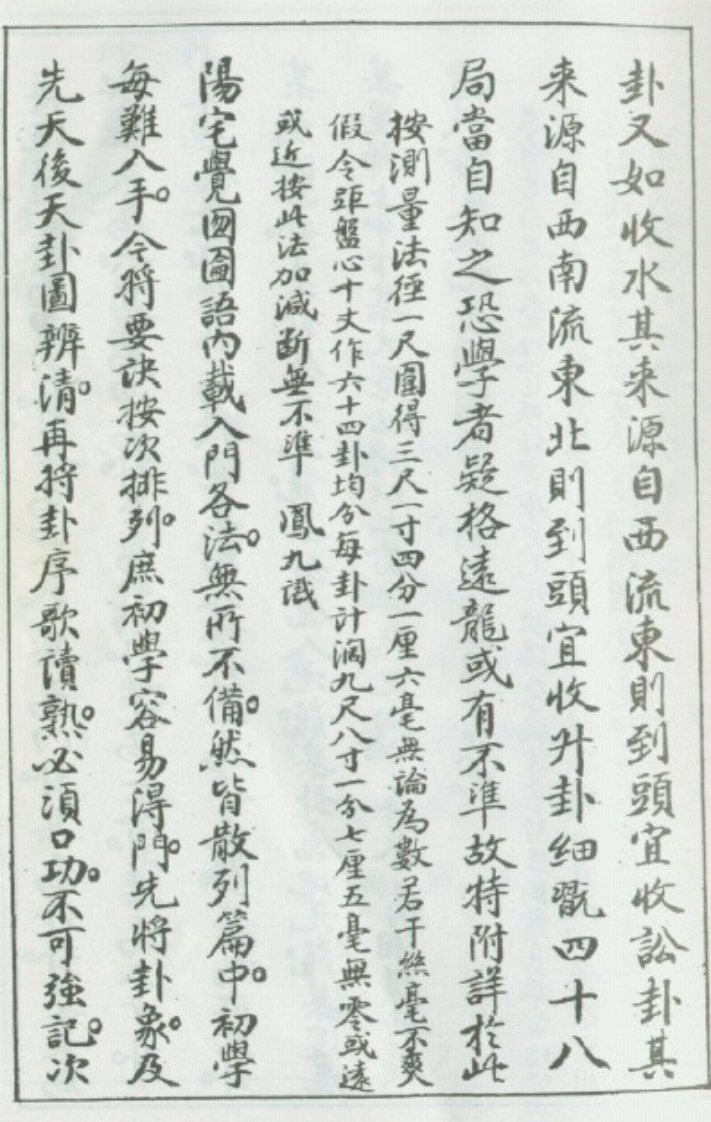 卦又如收水其来源自西流東則到頭宜收訟卦其
来源自西南流東北則到頭宜收升卦細翫四十八
局當自知之恐學者疑格遠龍或有不準故特附詳於此
按測量法徑一尺圍得三尺一寸四分一厘六毫無論為數若干絲毫不爽
假令距盤心十丈作六十四卦均分每卦計濶九尺八寸一分七厘五毫無零或遠
或近按此法加減斷無不準　鳳九識
陽宅覺圖語内載入門各法。無所不備。然皆散列篇中。初學
每難入手。今將要訣按次排列。庶初學容易得門。先將卦象。及
先天後天卦圖辨清。再將卦序歌讀熟。必須口功。不可強記。次